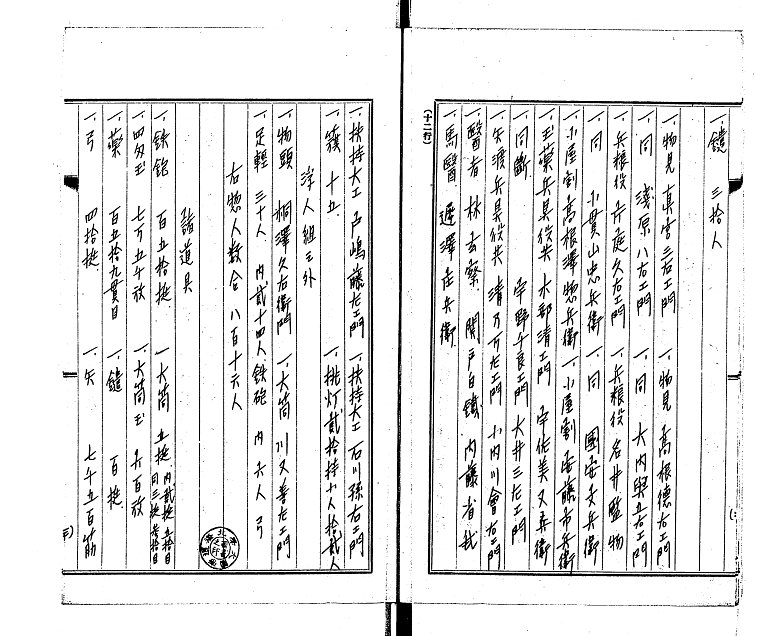 一、鑓　三拾人
一、物見　真宮三右エ門　一、物見　高根德右エ門
一、同　淺原八右エ門　一、同　大内與五右エ門
一、兵粮役　片庭久右エ門　一、兵粮役　名井監物
一、同　小貫山忠兵衛　一、同　國安文兵衛
一、小屋割　高根澤惣兵衛　一、小屋割　安藤市兵衛
一、玉藥兵具役共　水部清エ門　宇佐美又兵衛
一、同断　宇野千良エ門　大井三左エ門
一、矢渡兵具役共　清乃万左エ門　小内川會右エ門
一、醫者　林玄察　関戸白鐵　内藤省哲
一、馬醫　遅澤庄兵衛
(十二行)
一、扶持大工　戸嶋藤左エ門　一、扶持大工　石川孫右エ門
一、籏　十五　一、挑灯貳拾持小人拾貳人
浮人組之外
一、物頭　桐澤久右衛門　一、大筒　川又善左エ門
一、足輕　三十人　内貳十四人鉄砲　内六人弓
右惣人数合　八百十六人
諸道具
一、鉄砲　百五拾挺　一、大筒　五挺　内貳挺　五拾目　同三挺　
一、四匁玉　七万五千放　一、大筒玉　六百放
一、藥　百五拾九貫目　一、鑓　百挺
一、弓　四拾挺　一、矢　七千五百筋